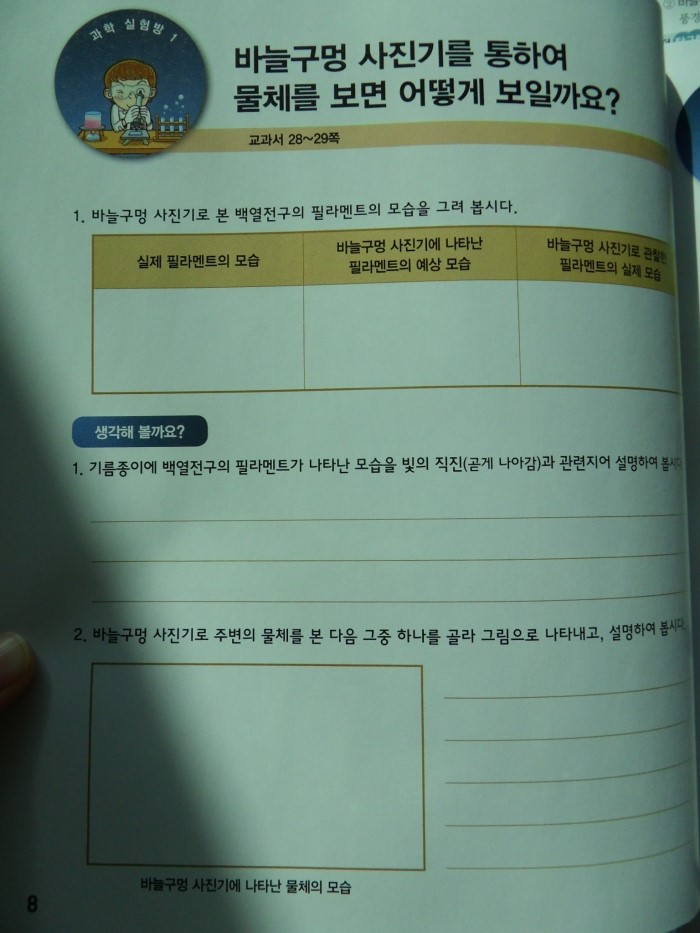 과학 실험방 1
바늘구멍 사진기를 통하여
물체를 보면 어떻게 보일까요?
교과서 28~29쪽
1. 바늘구멍 사진기로 본 백열전구의 필라멘트의 모습을 그려 봅시다.
실제 필라멘트의 모습
바늘구멍 사진기에 나타난
필라멘트의 예상 모습
바늘구멍 사진기로 관찰한
필라멘트의 실제 모습
생각해 볼까요?
1. 기름종이에 백열전구의 필라멘트가 나타난 모습을 빛의 직진(곧게 나아감)과 관련지어 설명하여 봅시다
2. 바늘구멍 사진기로 주변의 물체를 본 다음 그중 하나를 골라 그림으로 나타내고, 설명하여 봅시다.
바늘구멍 사진기에 나타난 물체의 모습
8